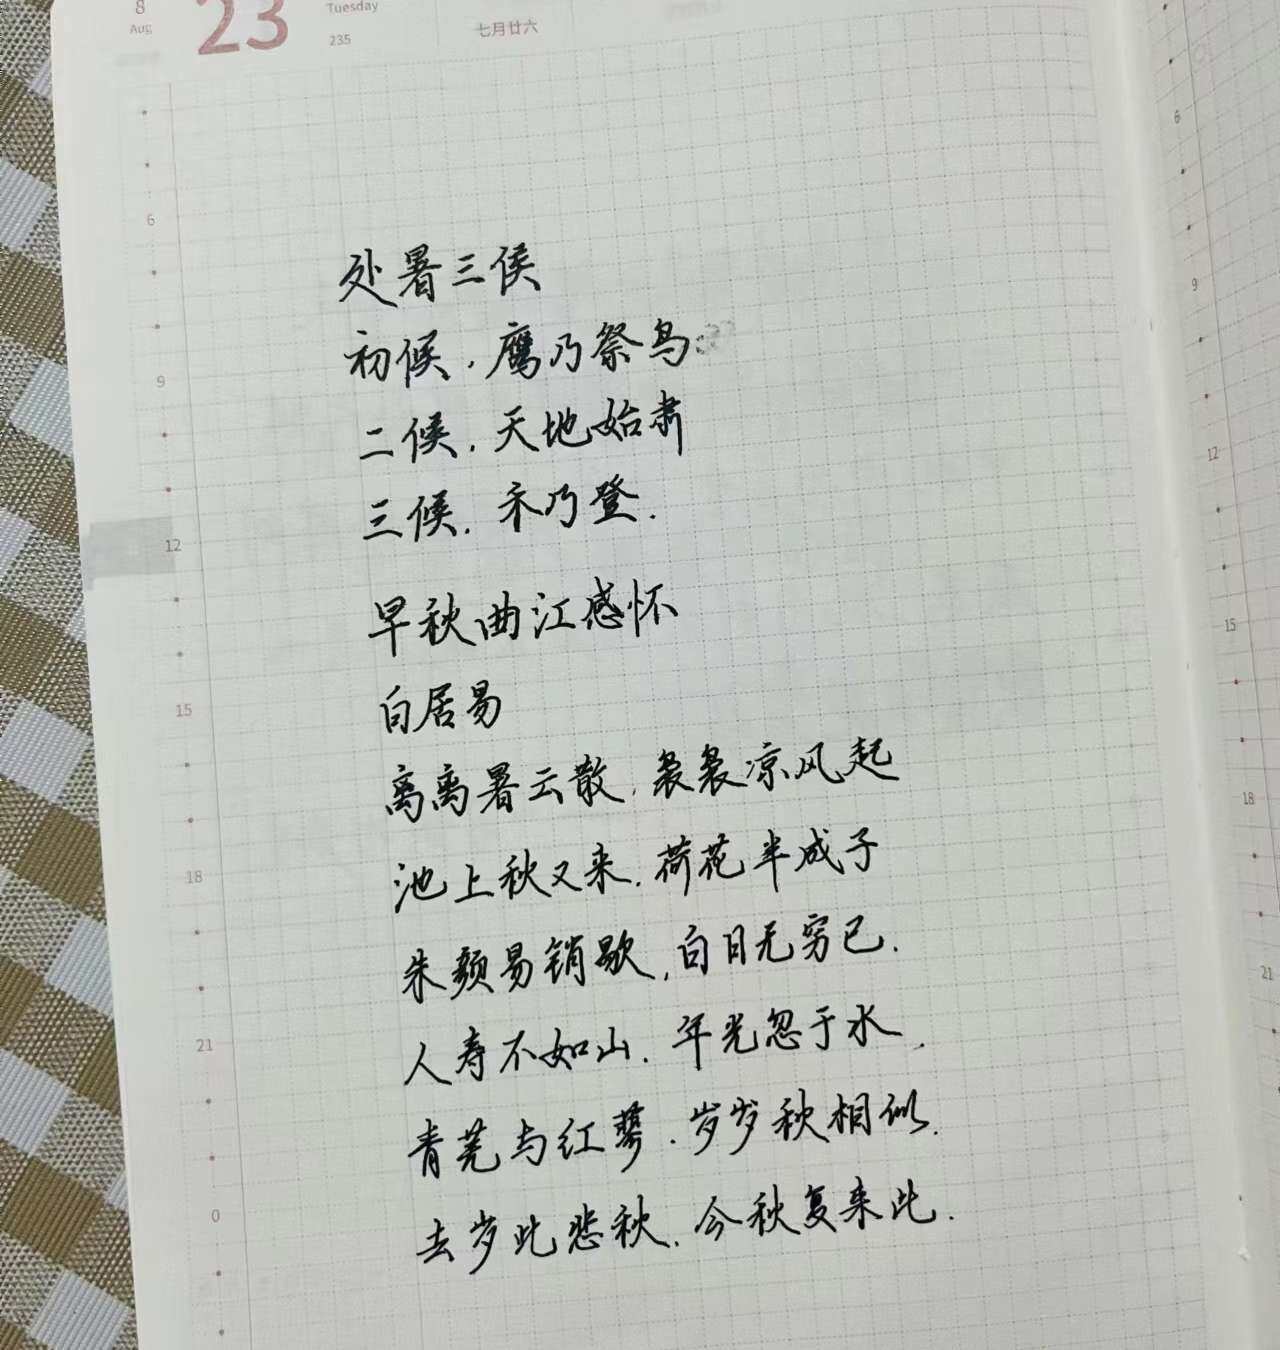 8
Aug
23
Tuesday
235
七月廿六
处暑三侯
初候，鹰乃祭鸟
二候，天地始肃
三候，禾乃登.
早秋曲江感怀
白居易
离离暑云散，袅袅凉风起
池上秋又来，荷花半成子
朱颜易销歇，白日无穷已.
人寿不如山，年光忽于水.
青芜与红蓼，岁岁秋相似.
去岁此悲秋，今秋复来此.
6
9
12
15
18
21
0
6
9
12
15
18
21